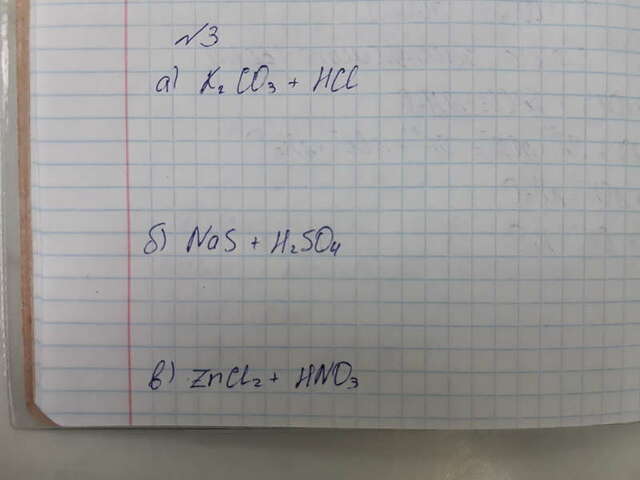 №3
а) K₂CO₃ + HCl
б) NaS + H₂SO₄
в) ZnCl₂ + HNO₃